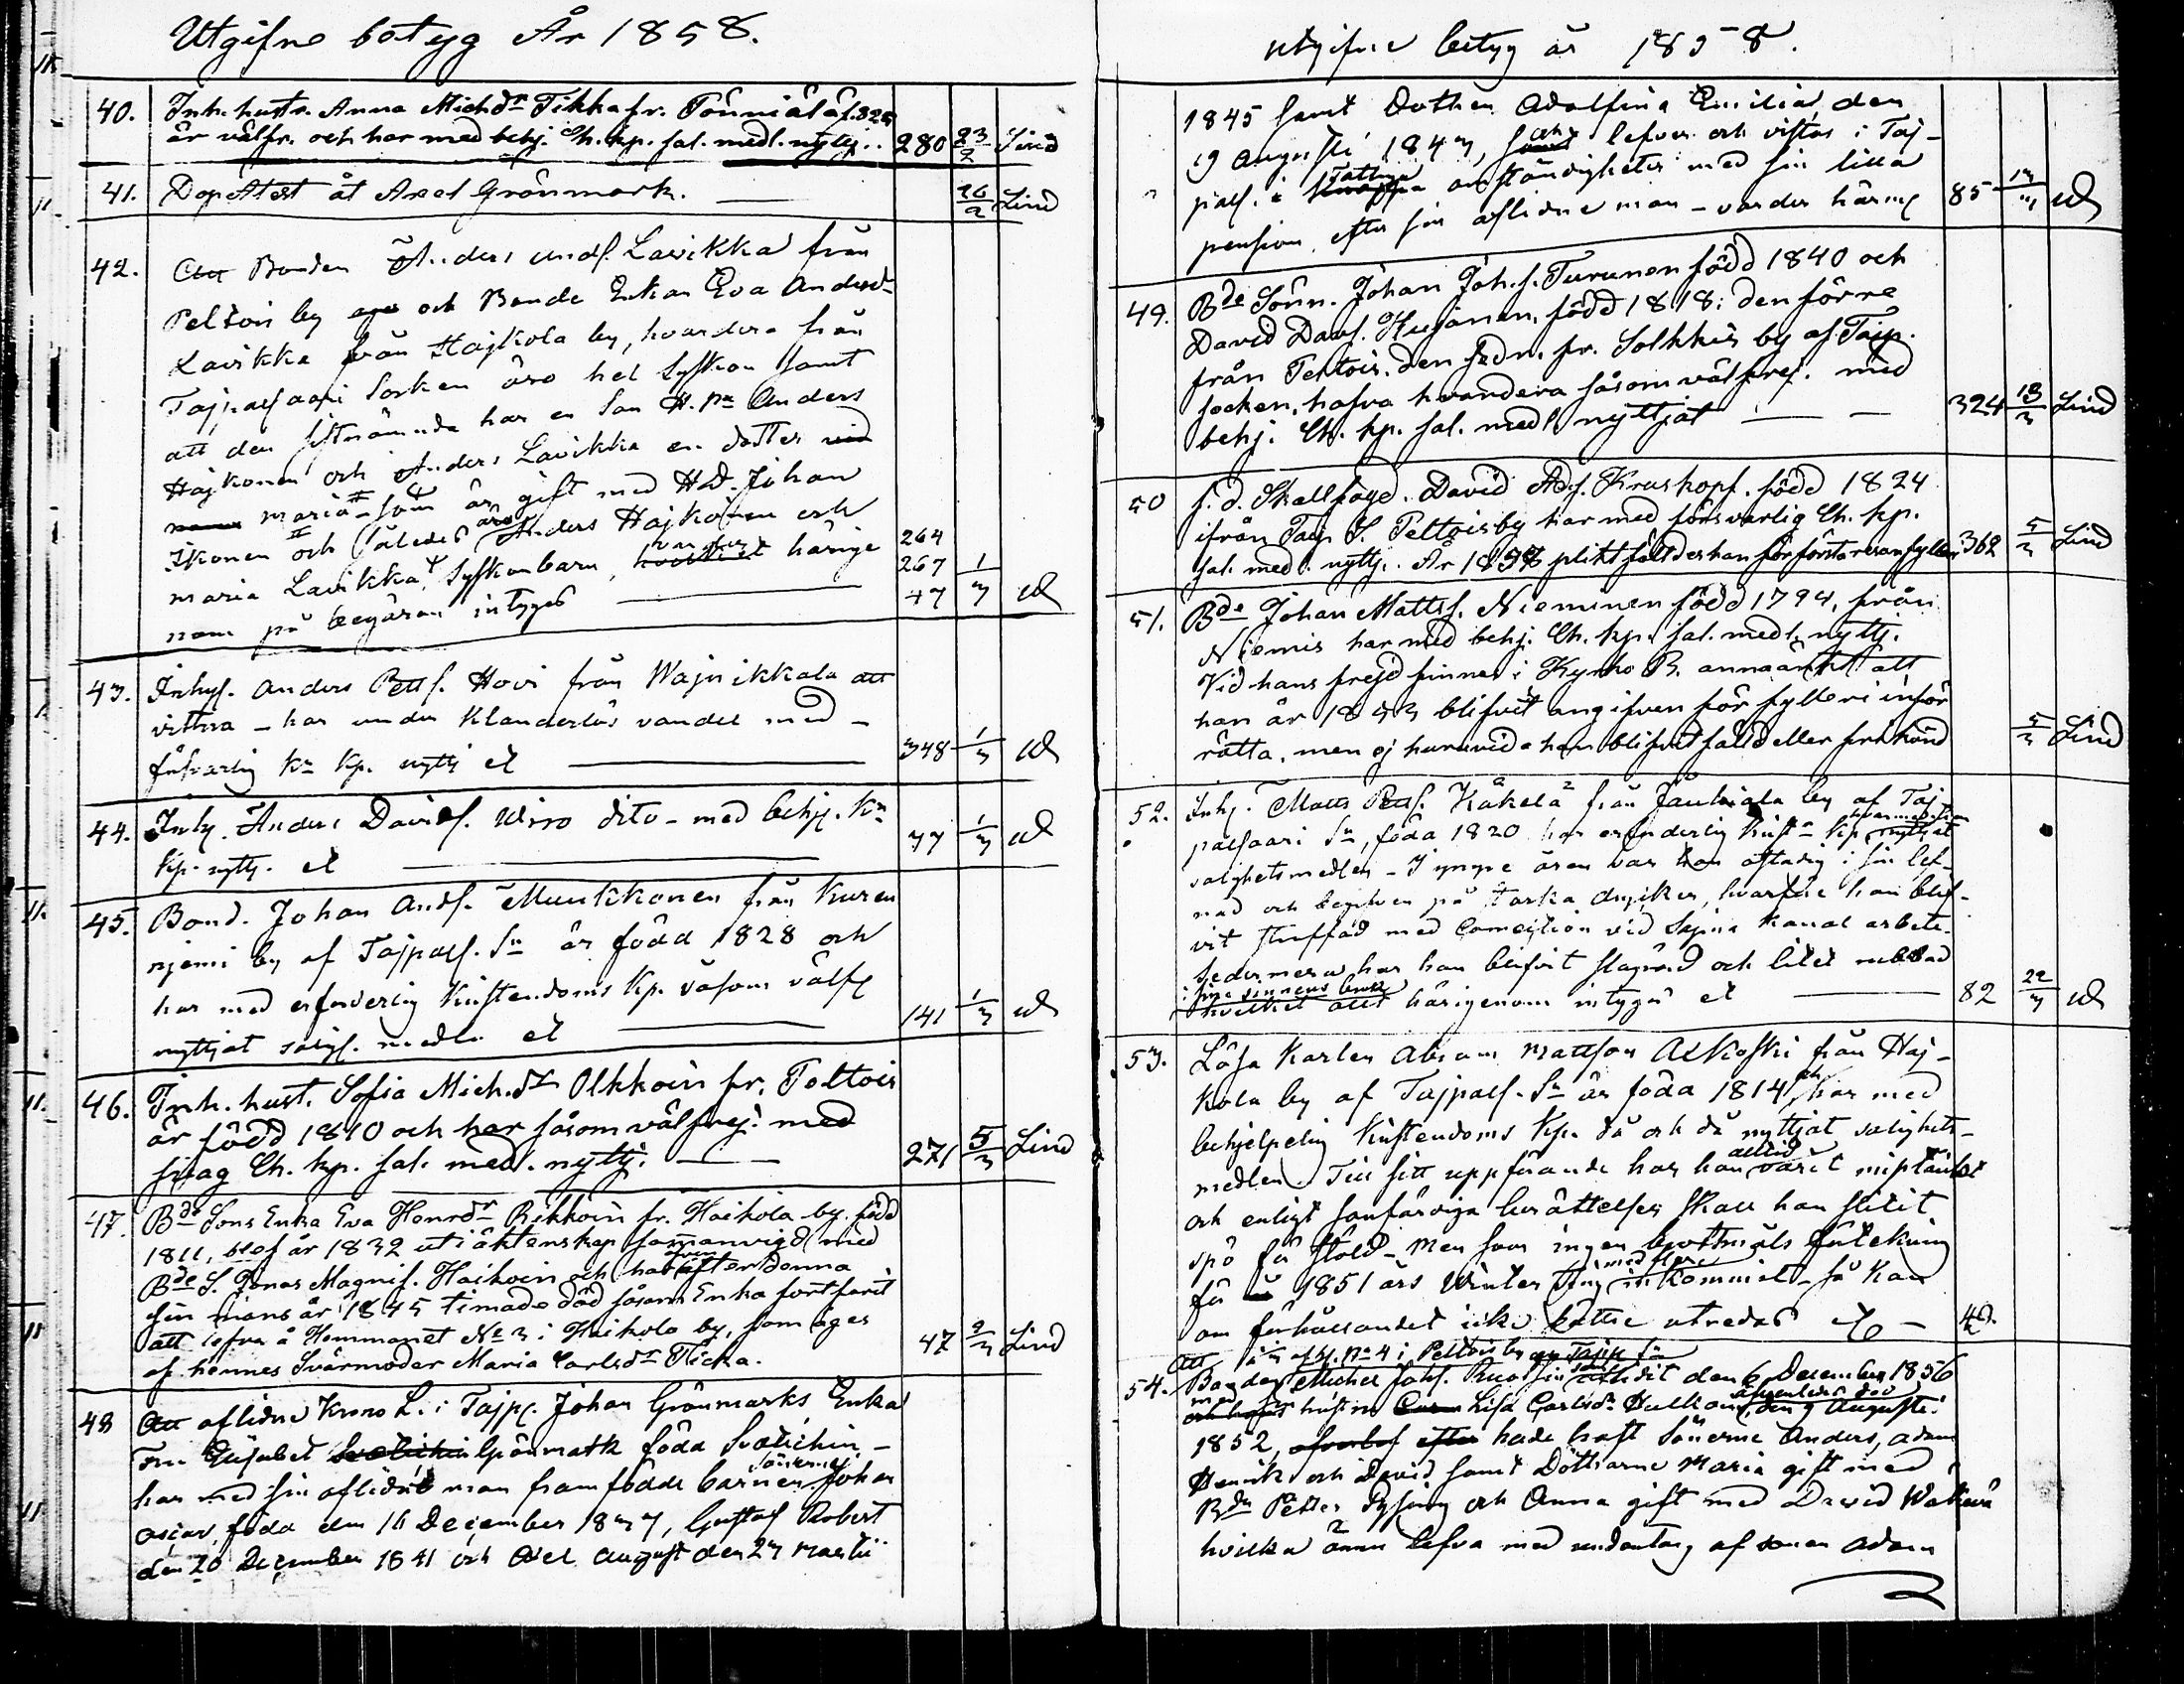 Utgifne betyg År 1858.
40. Inh. hustr. Anna Michdr Tikka fr. Tönniälä f. 825
är välfr. och har med behj. Ch. kp. sal. medl. nyttj. 280 23/2 Lind
41. Dop Atest åt Axel Grönmark. 26/2 Lind
42. Att Bonden Anders Andf. Lavikka från
Peltois by och Bonde Enkan Eva Andersdr
Lavikka från Hajkola by, hvardera från
Tajpalsaari Sorken äro hel Syskon samt
att den sistnämnda har en Son H. Anders
Hajkonen och Anders Lavikka en dotter
Maria som är gift med Johan
Ikonen och således äro Anders Hajkonen och 264
Maria Lavikka Syskonbarn, härige 267 1/3
nom på begäran intygas 47
43. Inhyf. Anders Pettf. Hovi från Wajnikkala att
vittna - har under Klanderlös vandel med
försvarlig Kn Kp. nyttj et 348 1/3
44. Inhy. Anders Davidf. Wirro dito - med behj. Kn
Kp. nyttj. et 77 1/3
45. Bond. Johan Andf. Muukkonen från Kuren
njemi by af Tajpalf. Sn är född 1828 och
har med erforderlig Kristendoms Kp. såsom välfr
nyttjat salgf. medle et 141 1/3
46. Inh. hust. Sofia Mich.dr Olkkoin fr. Peltois
är född 1810 och har såsom välfrej: med
svag Ch. kp. sal. med. nyttj. 271 5/3 Lind
47. Bde Sons Enka Eva Henrdr Rikkoin fr. Haikola by. född
1811, blef år 1832 uti äktenskap sammanvigd med
Bde S. Jonas Magnif. Haikoin och har äfven efter denna
sin mans år 1845 timade död såsom Enka fortfarit
att lefva å Hemmanet No 3 i Haikola by, som äges
af hennes Svärmoder Maria Carlsdr Ticka. 47 9/3 Lind
48 Att aflidne Krono L. i Tajpl. Johan Grönmarks Enka
Fru Elisabet Grönmark föda Svotichin -
har med sin aflidne man framfödde barnen Sönerne Johan
Oscar, föda den 16 December 1837, Gustaf Robert
den 20 December 1841 och Axel August den 27 Martii
utgifne betyg år 1858.
1845 samt Dottren Adolfina Emilia den
19 Augusti 1843, och lefver och vistas i Taj-
palf. i fattiga omständigheter med sin lilla
pension efter sin aflidne man - varder härme 85
49. Bde Sönn. Johan Joh.f. Turunen född 1840 och
David Davf. Husanen, född 1818: den förre
från Peltois. den sedn. fr. Solkkis by af Tajp.
socken, hafva hvardera såsom välfrej. med
behj. Ch. kp. sal. medl nyttjat 324 18/3 Lind
50 f. d. Skallfogd. David Adf. Kruskopf. född 1824
ifrån Tajp S. Peltois by har med försvarlig Ch. kp.
sal. med. nyttj. År 1857 pliktfälldes han för första resan fylleri 362 5/3 Lind
51. Bde Johan Mattsf. Nieminen född 1794, från
Niemis har med behj. Ch. kp. sal. medl. nyttj.
Vid hans frejd finnes i Kyrko B. annmärkt att
han år 1853 blifvit angifven för fylleri inför
rätta, men ej huruvida han blifvit fälld eller frikänd 5/3 Lind
52. Inhj. Matts Pettf. Käkelä från Jauhiala by af Taj
palsaari Sn, föda 1820 har erforderlig Krist Kp
salighetsmedlen - I yngre åren var han oftadig i sin lef-
nad och begifven på starka drycker, hvarföre han blif-
vit straffad med Correction vid Sajma Kanal arbete.
Sedermera har han blifvit slagrörd och litet rubbad
i sina sinnens bruk
hvilket allt härigenom intygas et 82 22/3
53. Lösa Karlen Abram Mattson Alkoski från Haj-
kola by af Tajpalf. Sn är föda 1814 och har med
behjelpelig Kristendoms Kp. då och då nyttjat salighets-
medlen. Till sitt uppförande har han alltid varit misstänkt
och enligt sanfärdiga berättelser skall han slitit
spö för stöld - Men som ingen brottmåls förtekning
för 1851 års Winter Ting inkommit - så kan
om förhållandet icke bättre utredas
Att
54. Bonden Michel Johf. aflidit den 6 December 1856
hustru Lisa Carlsdr den 9 Augusti
1852, hade haft Sönerne Anders, Adam
Henrik och David samt Döttrarne Maria gift med
Bdn Petter och Anna gift med David
hvilka ännu lefva med undantag af sonen Adam